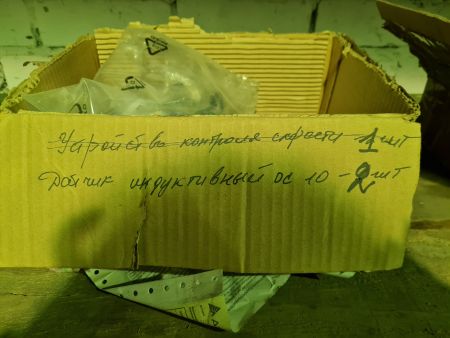 Устройство контроля скрости 1 шт
Датчик индуктивный ОС 10 - 2 шт